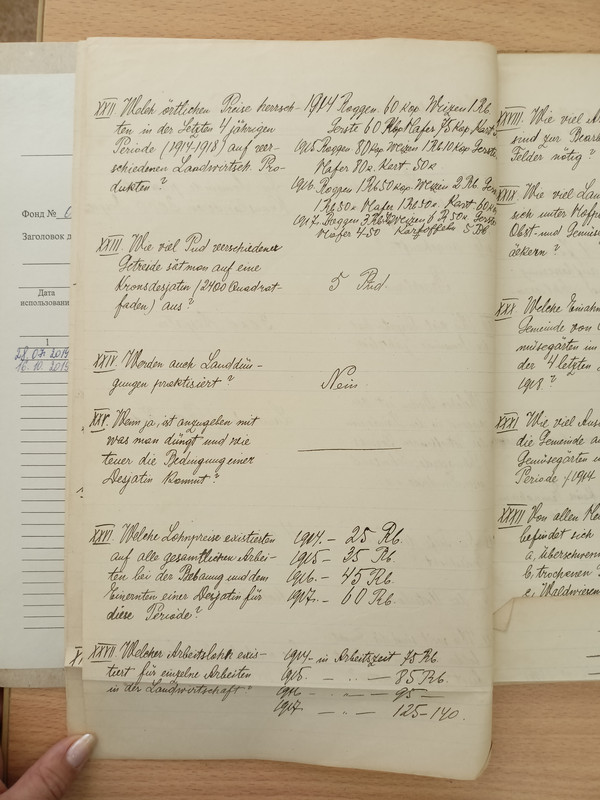 Фонд №
Заголовок д
Дата
использовани
1
28.07.2014
16.10.2015
XXII. Welch örtlichen Preise herrsch-
ten in der Letzten 4 jährigen
Periode (1914-1918) auf ver-
schiedenen Landwirtsch. Pro-
dukten?
1914 Roggen 60 Kop. Weizen 1 Rb.
Gerste 60 Kop Hafer 75 Kop Kart.
1915 Roggen 80 Kop Weizen 1 Rb 10 Kop Gerste
Hafer 80 к. Kart. 50 к
1916. Roggen 1 Rb 50 Kop. Weizen 2 Rb.
1 Rb 50 к Hafer 1 Rb 50 к. Kart 60 к
1917. Roggen 3 Weizen 6 R 50 к. Gerste
Hafer 4.50 Kartoffeln 5 Rb
XXIII. Wie viel Pud verschiedener
Getreide sät man auf eine
Kronsdesjatin (2400 Quadrat-
faden) aus?
5 Pud.
XXIV. Werden auch Landdün-
gungen praktisiert?
Nein.
XXV. Wenn ja, ist anzugeben mit
was man düngt und wie
teuer die Bedingung einer
Desjatin kommt?
XXVI. Welche Lohnpreise existierten
auf alle gesamtlichen Arbei-
ten bei der Bebaung und dem
Einernten einer Desjatin für
diese Periode?
1914. – 25 Rb.
1915 – 35 Rb.
1916. – 45 Rb.
1917. – 60 Rb.
XXVII. Welcher Arbeitslohn exis-
tiert für einzelne Arbeiten
in der Landwirtschaft?
1914 – in Arbeitszeit 75 Rb.
1915. – „ – 85 Rb.
1916 – „ – 95 –
1917 – „ – 125–140.
XXVIII. Wie viel
sind zur Bear
Felder nötig?
XXIX. Wie viel Lan
sich unter Hofpl
Obst- und Gemüse
äckern?
XXX. Welche Einahm
Gemeinde von
müsegärten in
der 4 letzten
1918?
XXXI. Wie viel Aus
die Gemeinde a
Gemüsegärten
Periode (1914
XXXII. Von allen He
befindet sich
a, überschwem
b, trockenen
c, Waldwiesen